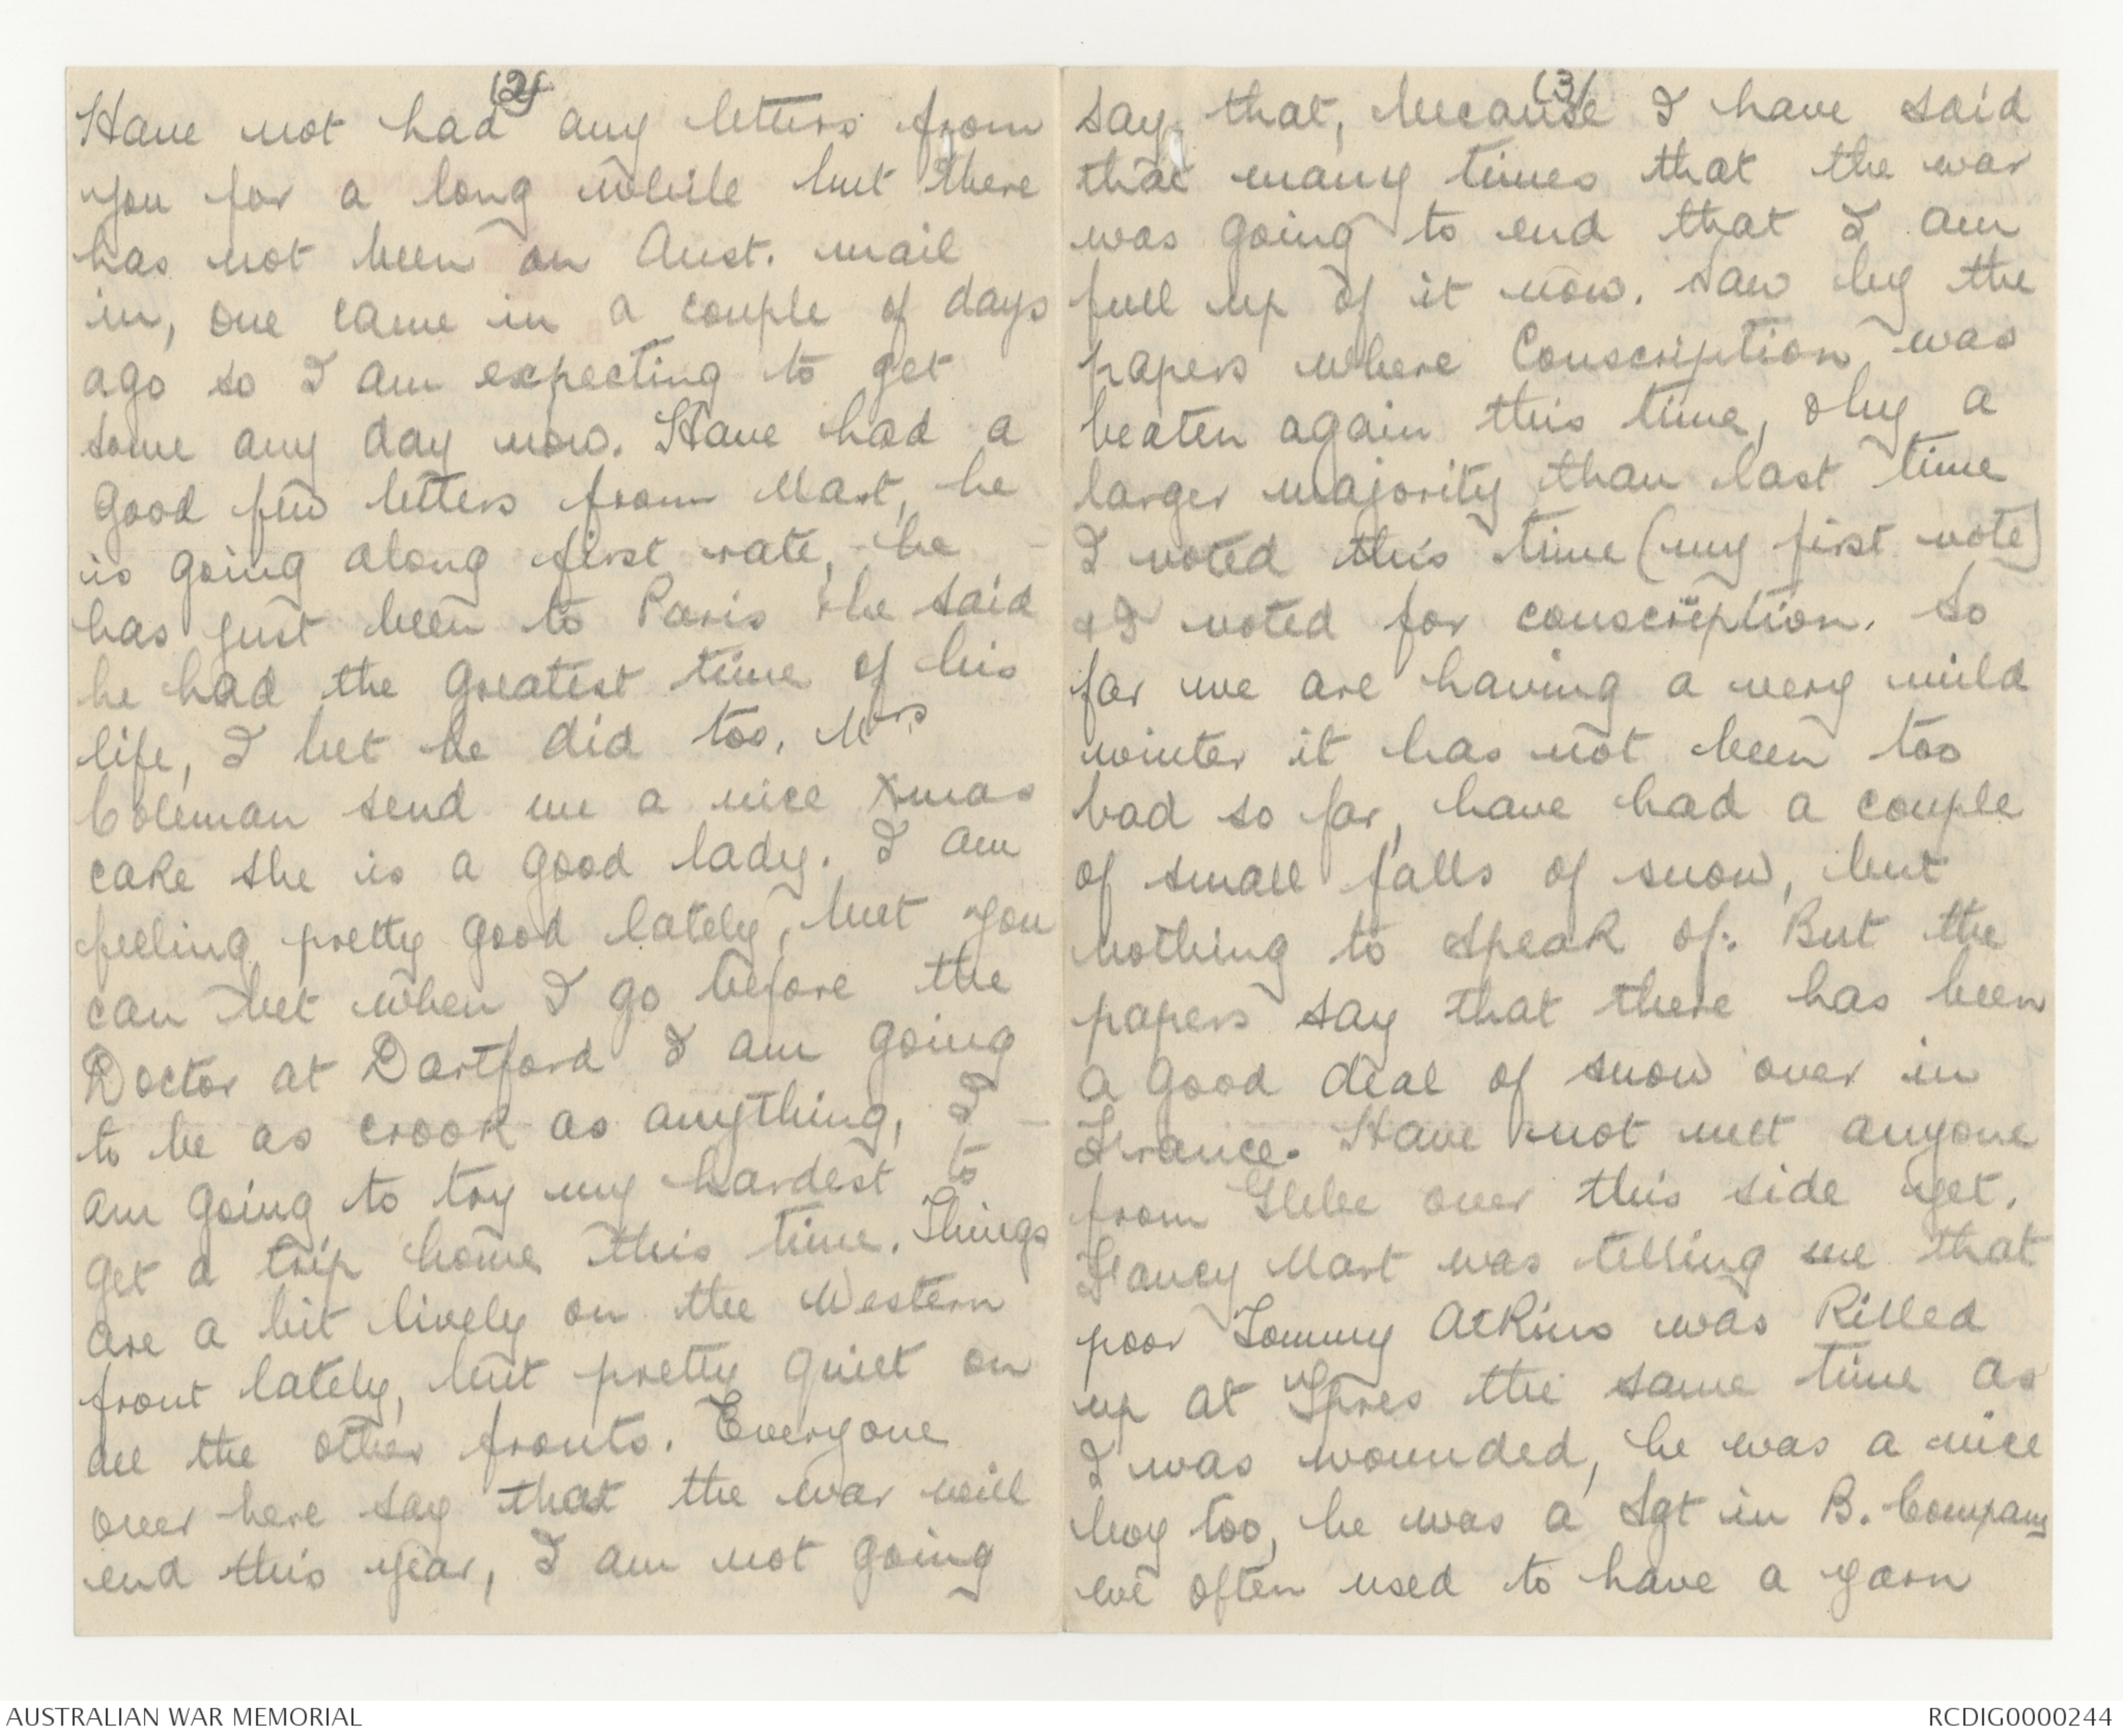 (2)
Have not had any letters from
you for a long while but there
has not been an Aust. mail
in, one came in a couple of days
ago so I am expecting to get
some any day now. Have had a
good few letters from Mart, he
is going along first rate, he
has just been to Paris & he said
he had the greatest time of his
life, I bet he did too. Mrs
Coleman send me a nice Xmas
cake she is a good lady. I am
feeling pretty good lately, but you
can bet when I go before the
Doctor at Dartford I am going
to be as crook as anything, I
am going to try my hardest to
get a trip home this time. Things
are a bit lively on the Western
front lately, but pretty quiet on
all the other fronts. Everyone
over here say that the war will
end this year, I am not going
(3)
say that, because I have said
that many times that the war
was going to end that I am
full up of it now. Saw by the
papers where Conscription was
beaten again this time, & by a
larger majority than last time
I voted this time (my first vote)
& I voted for conscription. So
far we are having a very mild
winter it has not been too
bad so far, have had a couple
of small falls of snow, but
nothing to speak of. But the
papers say that there has been
a good deal of snow over in
France. Have not met anyone
from Glebe over this side yet.
Fancy Mart was telling me that
poor Tommy Atkins was killed
up at Ypres the same time as
I was wounded, he was a nice
boy too, he was a Sgt in B. Company
we often used to have a yarn
AUSTRALIAN WAR MEMORIAL
RCDIG0000244